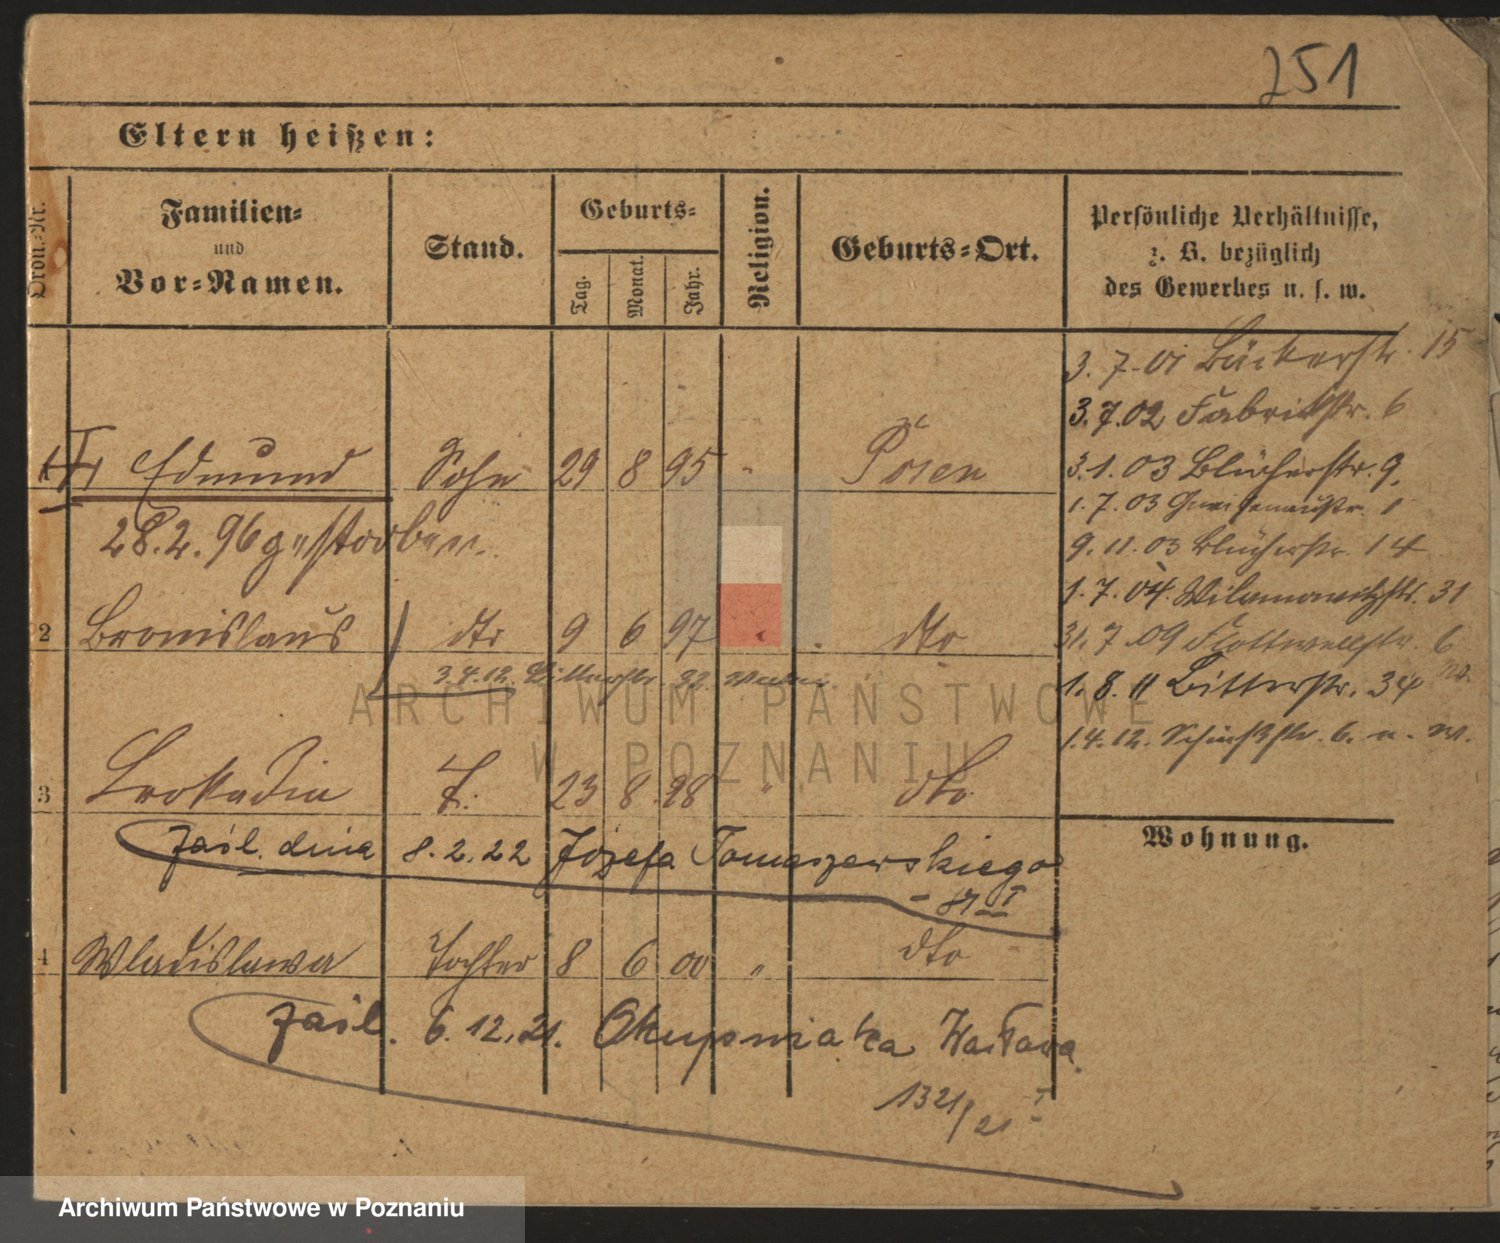 251
Eltern heißen:
Ordn.-Nr.
Familien-
und
Vor-Namen.
Stand.
Geburts-
Tag.
Monat.
Jahr.
Religion.
Geburts-Ort.
Persönliche Verhältnisse,
z. B. bezüglich
des Gewerbes u. s. w.
3. 7. 01 Bäckerstr. 15
3. 7. 02 Fabrikstr. 6
1 Edmund Sohn 29 8 95 " Posen
3. 1. 03 Blücherstr. 9,
1. 7. 03 Gneisenaustr. 1
28. 2. 96 gestorben.
9. 11. 03 Blücherstr. 14
1. 7. 04. Wilamowitzstr. 31
2 Bronislaus dto 9 6 97 " dto
31. 7. 09 Flottwellstr. 6
3. 4. 12. 22
1. 8. 11 Bitterstr. 34
1. 4. 12. 6. u. w.
ARCHIWUM PAŃSTWOWE
W POZNANIU
3 Leokadia T. 23 8 98 " dto
Wohnung.
zaśl. dnia 8. 2. 22 Józefa Tomaszewskiego
- 87 I
4 Wladislawa Tochter 8 6 00 " dto
zaśl. 6. 12. 21. Okupniaka
1321/21 I
Archiwum Państwowe w Poznaniu